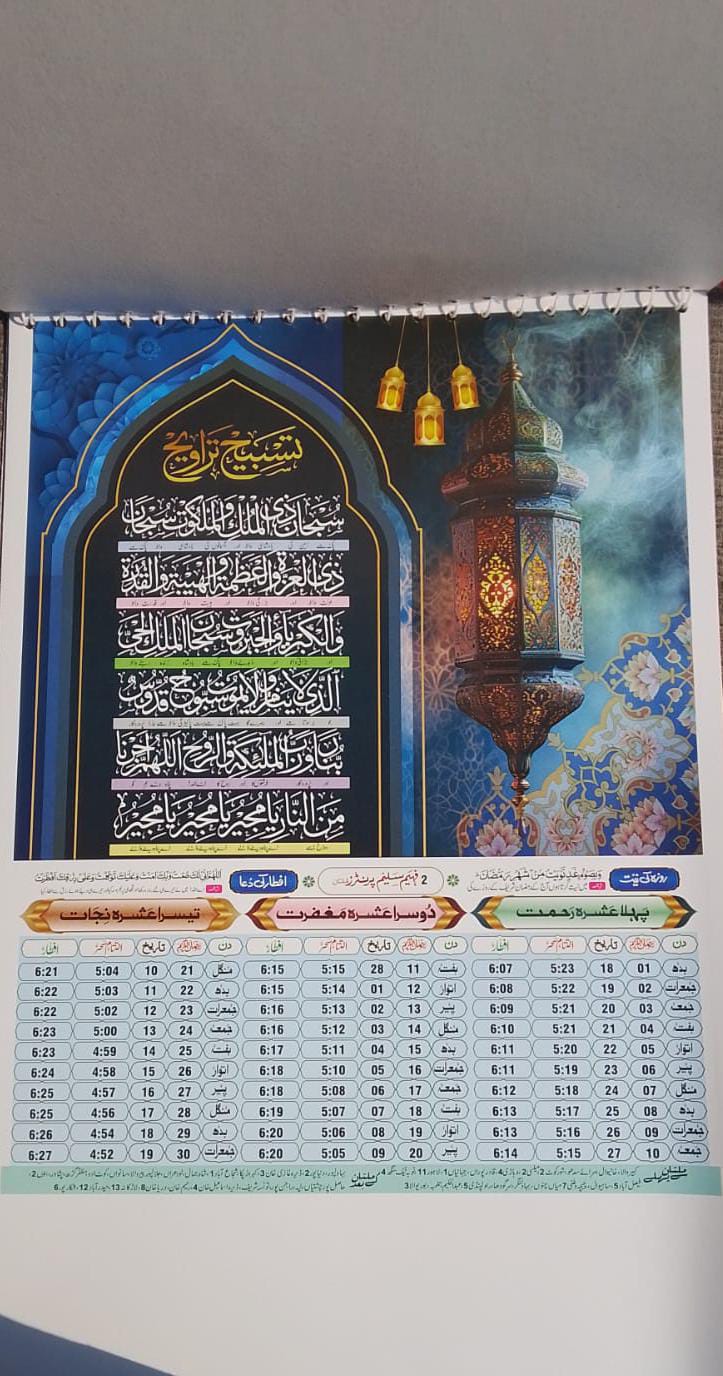 تسبیح تراویح
سُبْحَانَ ذِی الْمُلْكِ وَالْمَلَكُوْتِ سُبْحَانَ
ذِی الْعِزَّةِ وَالْعَظَمَةِ وَالْهَيْبَةِ وَالْقُدْرَةِ
وَالْكِبْرِيَاءِ وَالْجَبَرُوْتِ سُبْحَانَ الْمَلِكِ الْحَیِّ
الَّذِیْ لَا يَنَامُ وَلَا يَمُوْتُ سُبُّوْحٌ قُدُّوْسٌ
رَبُّنَا وَرَبُّ الْمَلٰئِكَةِ وَالرُّوْحِ اَللّٰهُمَّ اَجِرْنَا
مِنَ النَّارِ يَا مُجِيْرُ يَا مُجِيْرُ يَا مُجِيْرُ
روزہ کی نیت
وَبِصَوْمِ غَدٍ نَّوَيْتُ مِنْ شَهْرِ رَمَضَانَ
2 فہیم سلیم پرنٹرز
افطار کی دعا
اَللّٰهُمَّ اِنِّی لَكَ صُمْتُ وَبِكَ اٰمَنْتُ وَعَلَيْكَ تَوَكَّلْتُ وَعَلٰی رِزْقِكَ اَفْطَرْتُ
پہلا عشرہ رحمت
دن رمضان تاریخ اختتام سحر افطار
بدھ 01 18 5:23 6:07
جمعرات 02 19 5:22 6:08
جمعہ 03 20 5:21 6:09
ہفتہ 04 21 5:21 6:10
اتوار 05 22 5:20 6:11
پیر 06 23 5:19 6:11
منگل 07 24 5:18 6:12
بدھ 08 25 5:17 6:13
جمعرات 09 26 5:16 6:13
جمعہ 10 27 5:15 6:14
دوسرا عشرہ مغفرت
دن رمضان تاریخ اختتام سحر افطار
ہفتہ 11 28 5:15 6:15
اتوار 12 01 5:14 6:15
پیر 13 02 5:13 6:16
منگل 14 03 5:12 6:16
بدھ 15 04 5:11 6:17
جمعرات 16 05 5:10 6:18
جمعہ 17 06 5:08 6:18
ہفتہ 18 07 5:07 6:19
اتوار 19 08 5:06 6:20
پیر 20 09 5:05 6:20
تیسرا عشرہ نجات
دن رمضان تاریخ اختتام سحر افطار
منگل 21 10 5:04 6:21
بدھ 22 11 5:03 6:22
جمعرات 23 12 5:02 6:22
جمعہ 24 13 5:00 6:23
ہفتہ 25 14 4:59 6:23
اتوار 26 15 4:58 6:24
پیر 27 16 4:57 6:25
منگل 28 17 4:56 6:25
بدھ 29 18 4:54 6:26
جمعرات 30 19 4:52 6:27